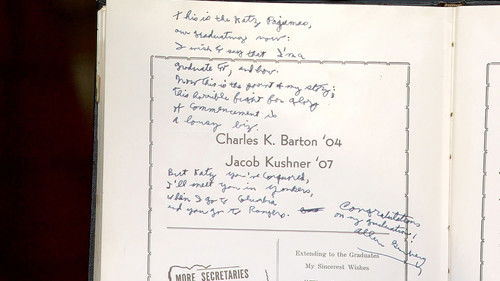 This is the Katz Pajamas,
our graduating now:
I wish to say that I'm a
graduate G, and how.
Now this is the point of my story;
This horrible fight for glory
Of Commencement is
a lousy biz.
Charles K. Barton '04
Jacob Kushner '07
But Katy you've conquered,
I'll meet you in Yonkers,
when I go to Columbia
and you go to Rutgers.
Congratulations
on my graduation!
Allen Ginsberg
Extending to the Graduates
My Sincerest Wishes
MORE SECRETARIES